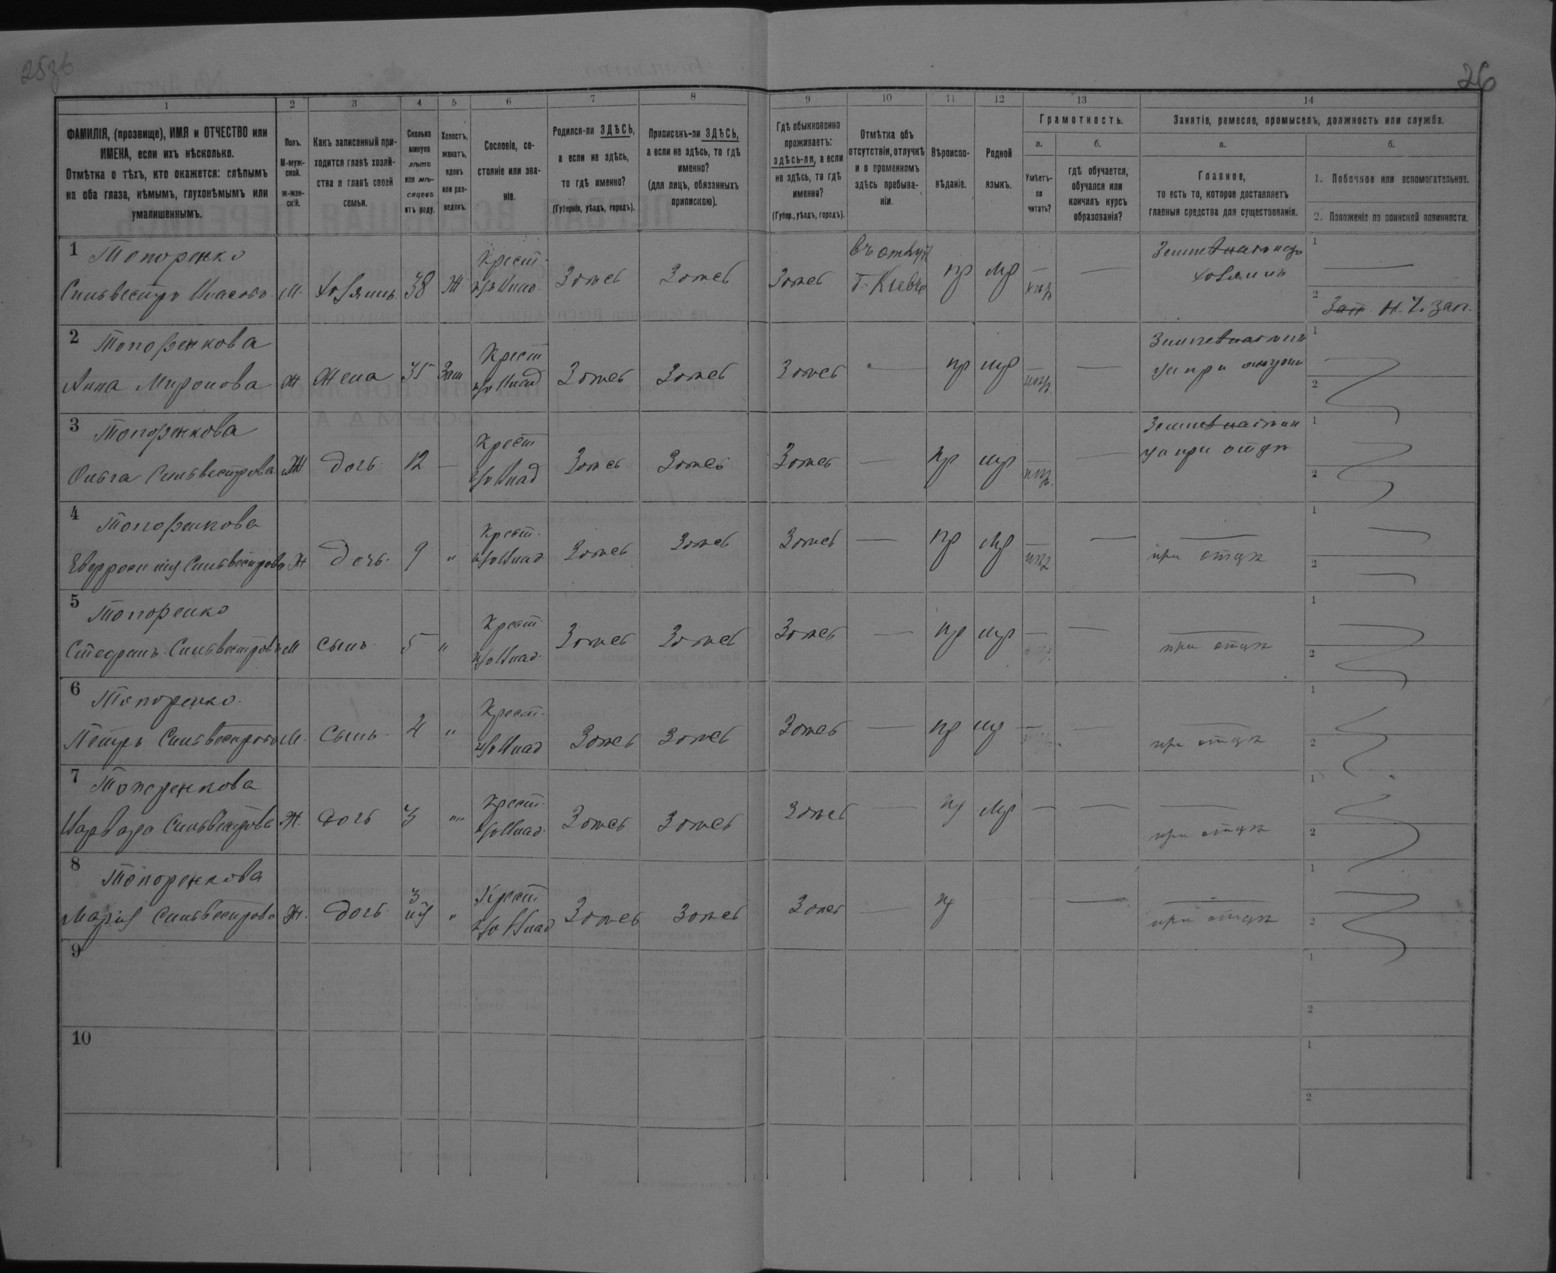 25об
26
1
2
3
4
5
6
7
8
9
10
11
12
13
14
ФАМИЛІЯ, (прозвище), ИМЯ и ОТЧЕСТВО или
ИМЕНА, если ихъ нѣсколько.
Отмѣтка о тѣхъ, кто окажется: слѣпымъ
на оба глаза, нѣмымъ, глухонѣмымъ или
умалишеннымъ.
Полъ.
М-муж-
ской.
Ж-жен-
скій.
Какъ записанный при-
ходится главѣ хозяй-
ства и главѣ своей
семьи.
Сколько
минуло
лѣтъ
или мѣ-
сяцевъ
отъ роду.
Холостъ,
женатъ,
вдовъ
или раз-
веденъ.
Сословіе, со-
стояніе или зва-
ніе.
Родился-ли ЗДѢСЬ,
а если не здѣсь,
то гдѣ именно?
(Губернія, уѣздъ, городъ).
Приписанъ-ли ЗДѢСЬ,
а если не здѣсь, то гдѣ
именно?
(для лицъ, обязанныхъ
припискою).
Гдѣ обыкновенно
проживаетъ:
здѣсь-ли, а если
не здѣсь, то гдѣ
именно?
(Губер., уѣздъ, городъ).
Отмѣтка объ
отсутствіи, отлучкѣ
и о временномъ
здѣсь пребыва-
ніи.
Вѣроиспо-
вѣданіе.
Родной
языкъ.
Грамотность.
а.
Умѣетъ-
ли
читать?
б.
гдѣ обучается,
обучался или
кончилъ курсъ
образованія?
Занятіе, ремесло, промыселъ, должность или служба.
а.
Главное,
то есть то, которое доставляетъ
главныя средства для существованія.
б.
1. Побочное или вспомогательное.
2. Положеніе по воинской повинности.
1 Топоренко
Сильвестръ Власовъ М. хозяинъ 38 Ж Крест. Здѣсь Здѣсь Здѣсь въ отлуч г. Кіевѣ пр мр
хозяинъ
Н. Ч. зап.
2 Топоренкова
Анна Миронова Ж жена 35 Зам Крест Здѣсь Здѣсь Здѣсь — пр мр
3 Топоренкова
Ольга Сильвестрова Ж дочь 12 — Крест Здѣсь Здѣсь Здѣсь — пр мр
4 Топоренкова
Сильвестрова Ж дочь 9 „ Крест. Здѣсь Здѣсь Здѣсь — пр мр при отцѣ
5 Топоренко
Стефанъ Сильвестровъ М сынъ 5 „ Крест Здѣсь Здѣсь Здѣсь — пр мр при отцѣ
6 Топоренко
Петръ Сильвестровъ М. сынъ 4 „ Крест. Здѣсь Здѣсь Здѣсь — пр мр при отцѣ
7 Топоренкова
Варвара Сильвестрова Ж. дочь 3 „ Крест. Здѣсь Здѣсь Здѣсь — пр мр при отцѣ
8 Топоренкова
Марія Сильвестрова Ж. дочь 3 „ Крест Здѣсь Здѣсь Здѣсь — пр при отцѣ
9
10